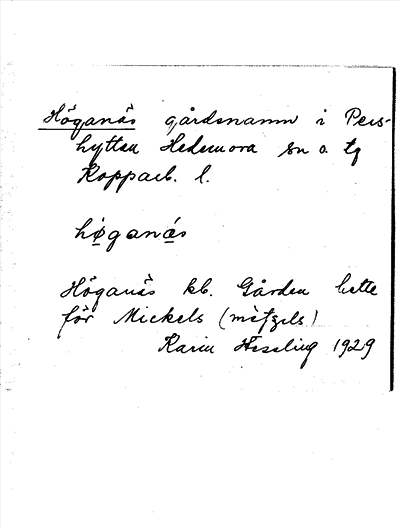 Höganäs gårdsnamn i Pers-
hyttan Hedemora sn o. tg
Kopparb. l.
høganæs
Höganäs kb. Gården hette
för Mickels (
Karin Hessling 1929